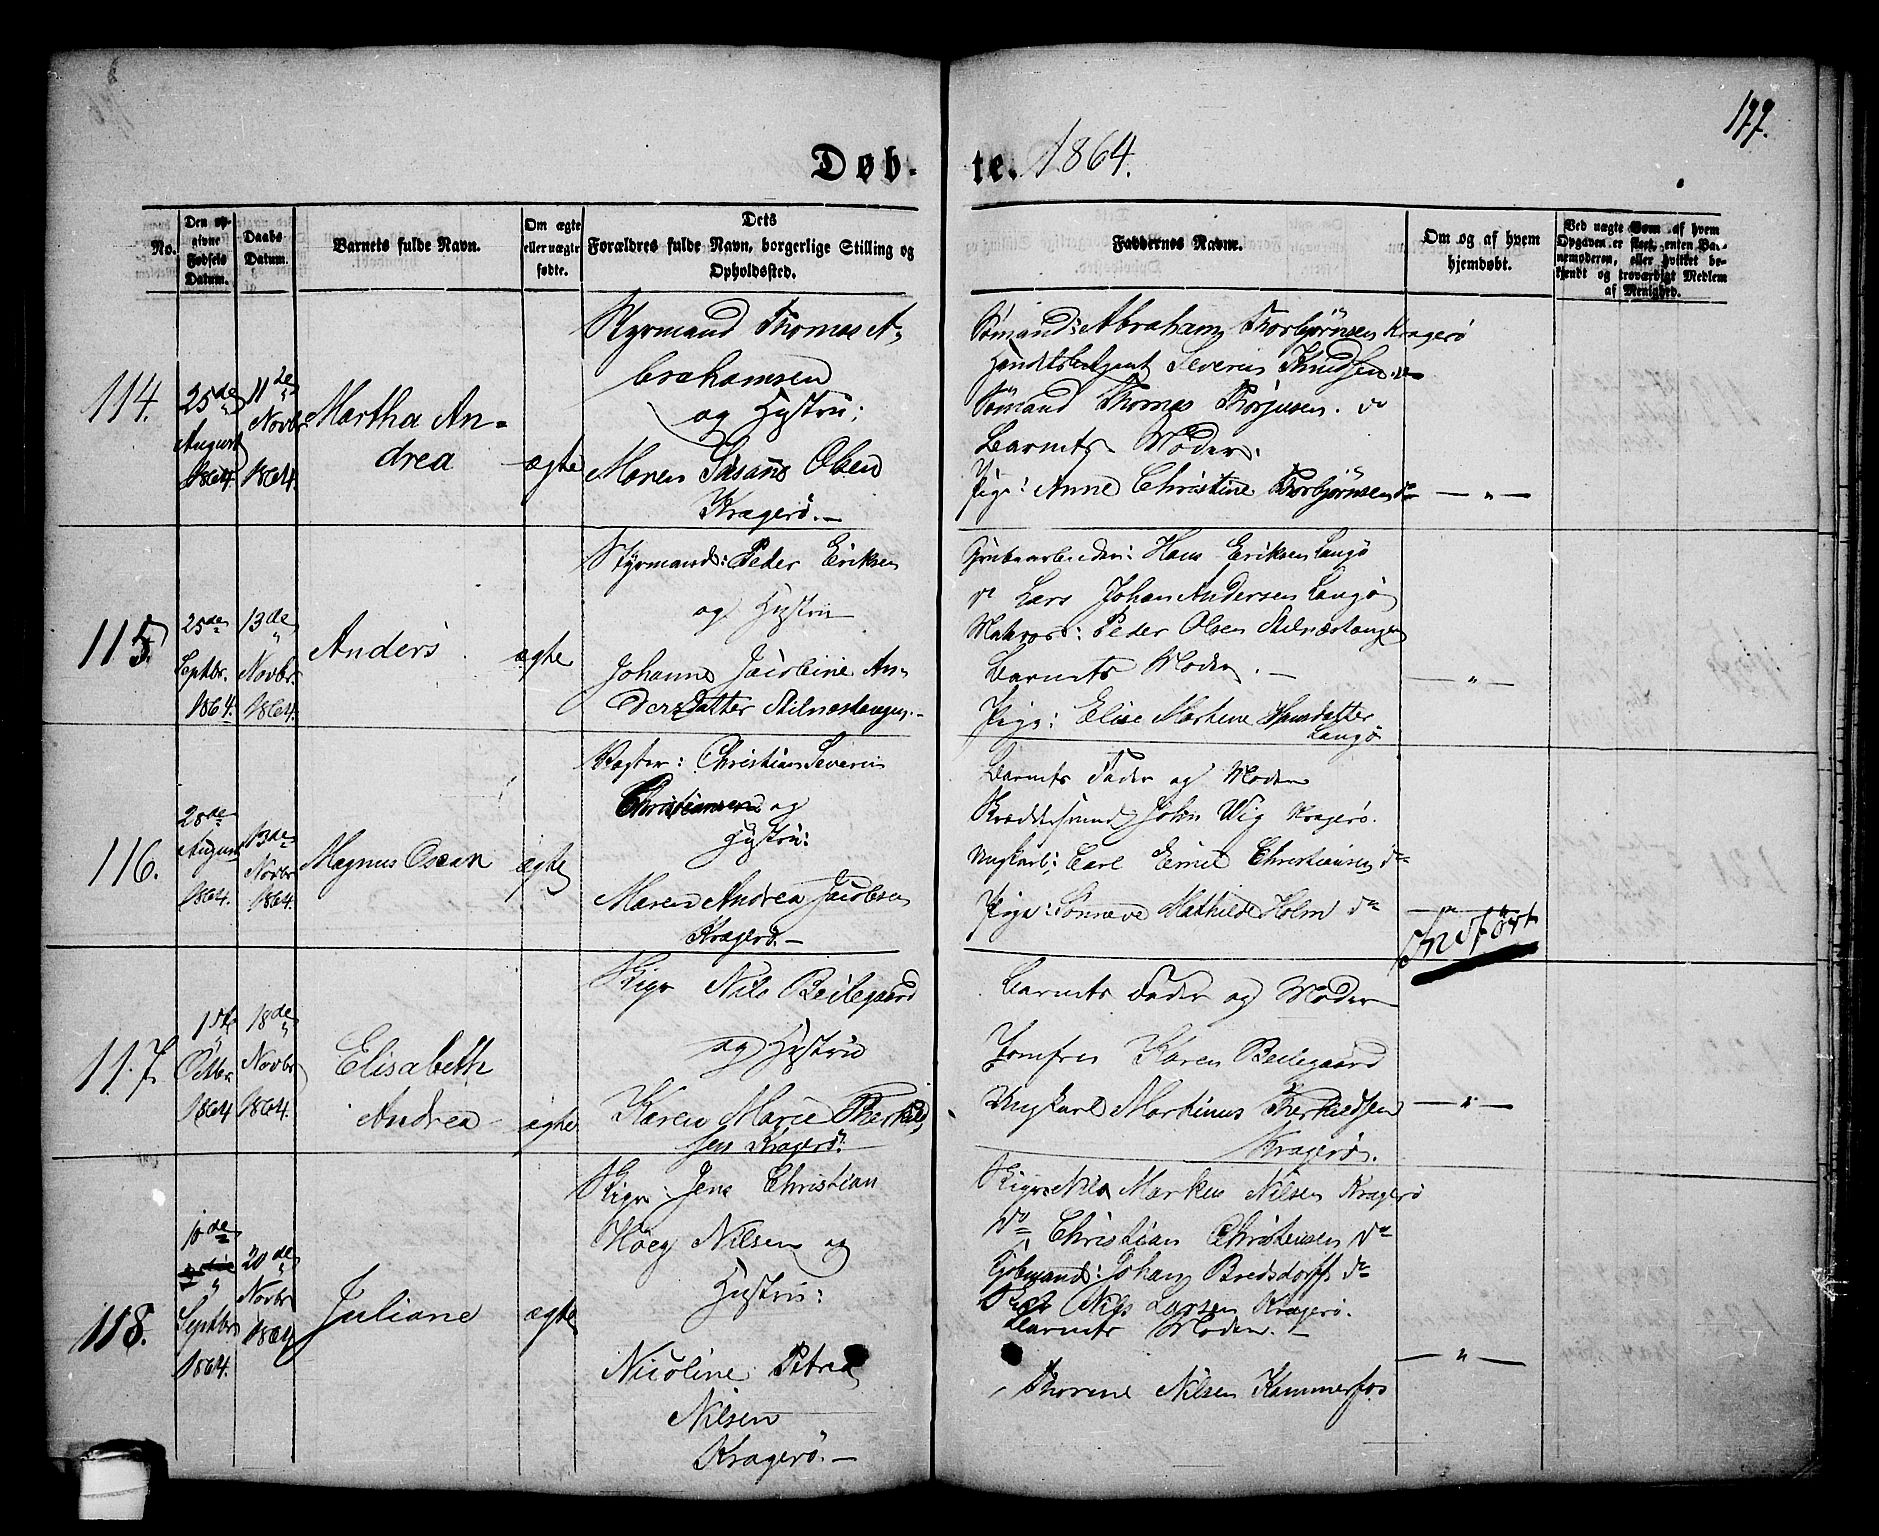 177.
Døb-te. 1864.
No.
Den op-
givne
Fødsels
Datum.
Daabs
Datum.
Barnets fulde Navn.
Om ægte
eller uægte
fødte.
Dets
Forældres fulde Navn, borgerlige Stilling og
Opholdssted.
Faddernes Navn.
Om og af hvem
hjemdøbt.
Ved uægte Børn af hvem
Opgaven er skeet, enten Bar-
nemoderen, eller hvilket be-
kjendt og troværdigt Medlem
af Menighed.
114.
25de
August
1864.
11de
Novbr
1864.
Martha An-
drea
ægte
Styrmand Thomas A-
brahamsen
og Hustru:
Maren Susanne Olsen
Kragerö.—
Sömand: Abraham Thorbjörnsen Kragerö
Handelsbetjent Severin Knudsen do
Sömand Thomas Thorjusen. do
Barnets Moder.
Pige: Anne Christine Thorbjörnsen do
— " —
115.
25de
Septbr.
1864.
13de
Novbr.
1864.
Anders
ægte
Styrmand: Peder Eriksen
og Hustru
Johanne Jacobine An-
dersdatter Stilnæstangen.—
Grubearbeider: Hans Eriksen Langö
do Lars Johan Andersen Langö
Matros: Peder Olsen Stilnæstangen
Barnets Moder.—
Pige: Elise Martine Hansdatter
Langö
— " —
116.
28de
August
1864.
13de
Novbr
1864.
Magnus Oscar
ægte
Vægter: Christian Severin
Christiansen og
Hustru:
Maren Andrea Jacobsen
Kragerö.—
Barnets Fader og Moder
Skræddersvend John Wig Kragerö.
Ungkarl: Carl Emil Christiansen do
Pige: Sonneve Mathilde Holm do
— " —
Indført
117.
1ste
Octbr
1864
18de
Novbr
1864.
Elisabeth
Andrea
ægte
Skipr Nils Beilegaard
og Hustru
Karen Marie Therkild-
sen Kragerö.
Barnets Fader og Moder
Jomfru Karen Beilegaard
Ungkarl Martinus Therkildsen
Kragerö.
— " —
118.
10de
Septbr
1864.
20de
Novbr
1864
Juliane
ægte
Skipr: Jens Christian
Höeg Nilsen og
Hustru:
Nicoline Petrea
Nilsen
Kragerö.—
Skipr Nils Markus Nilsen Kragerö
do Christian Christensen do
Kjöbmand: Johan Bredsdorff do
Nils Larsen Kragerö.
Barnets Moder.—
Thorine Nilsen Kammerfos
— " —